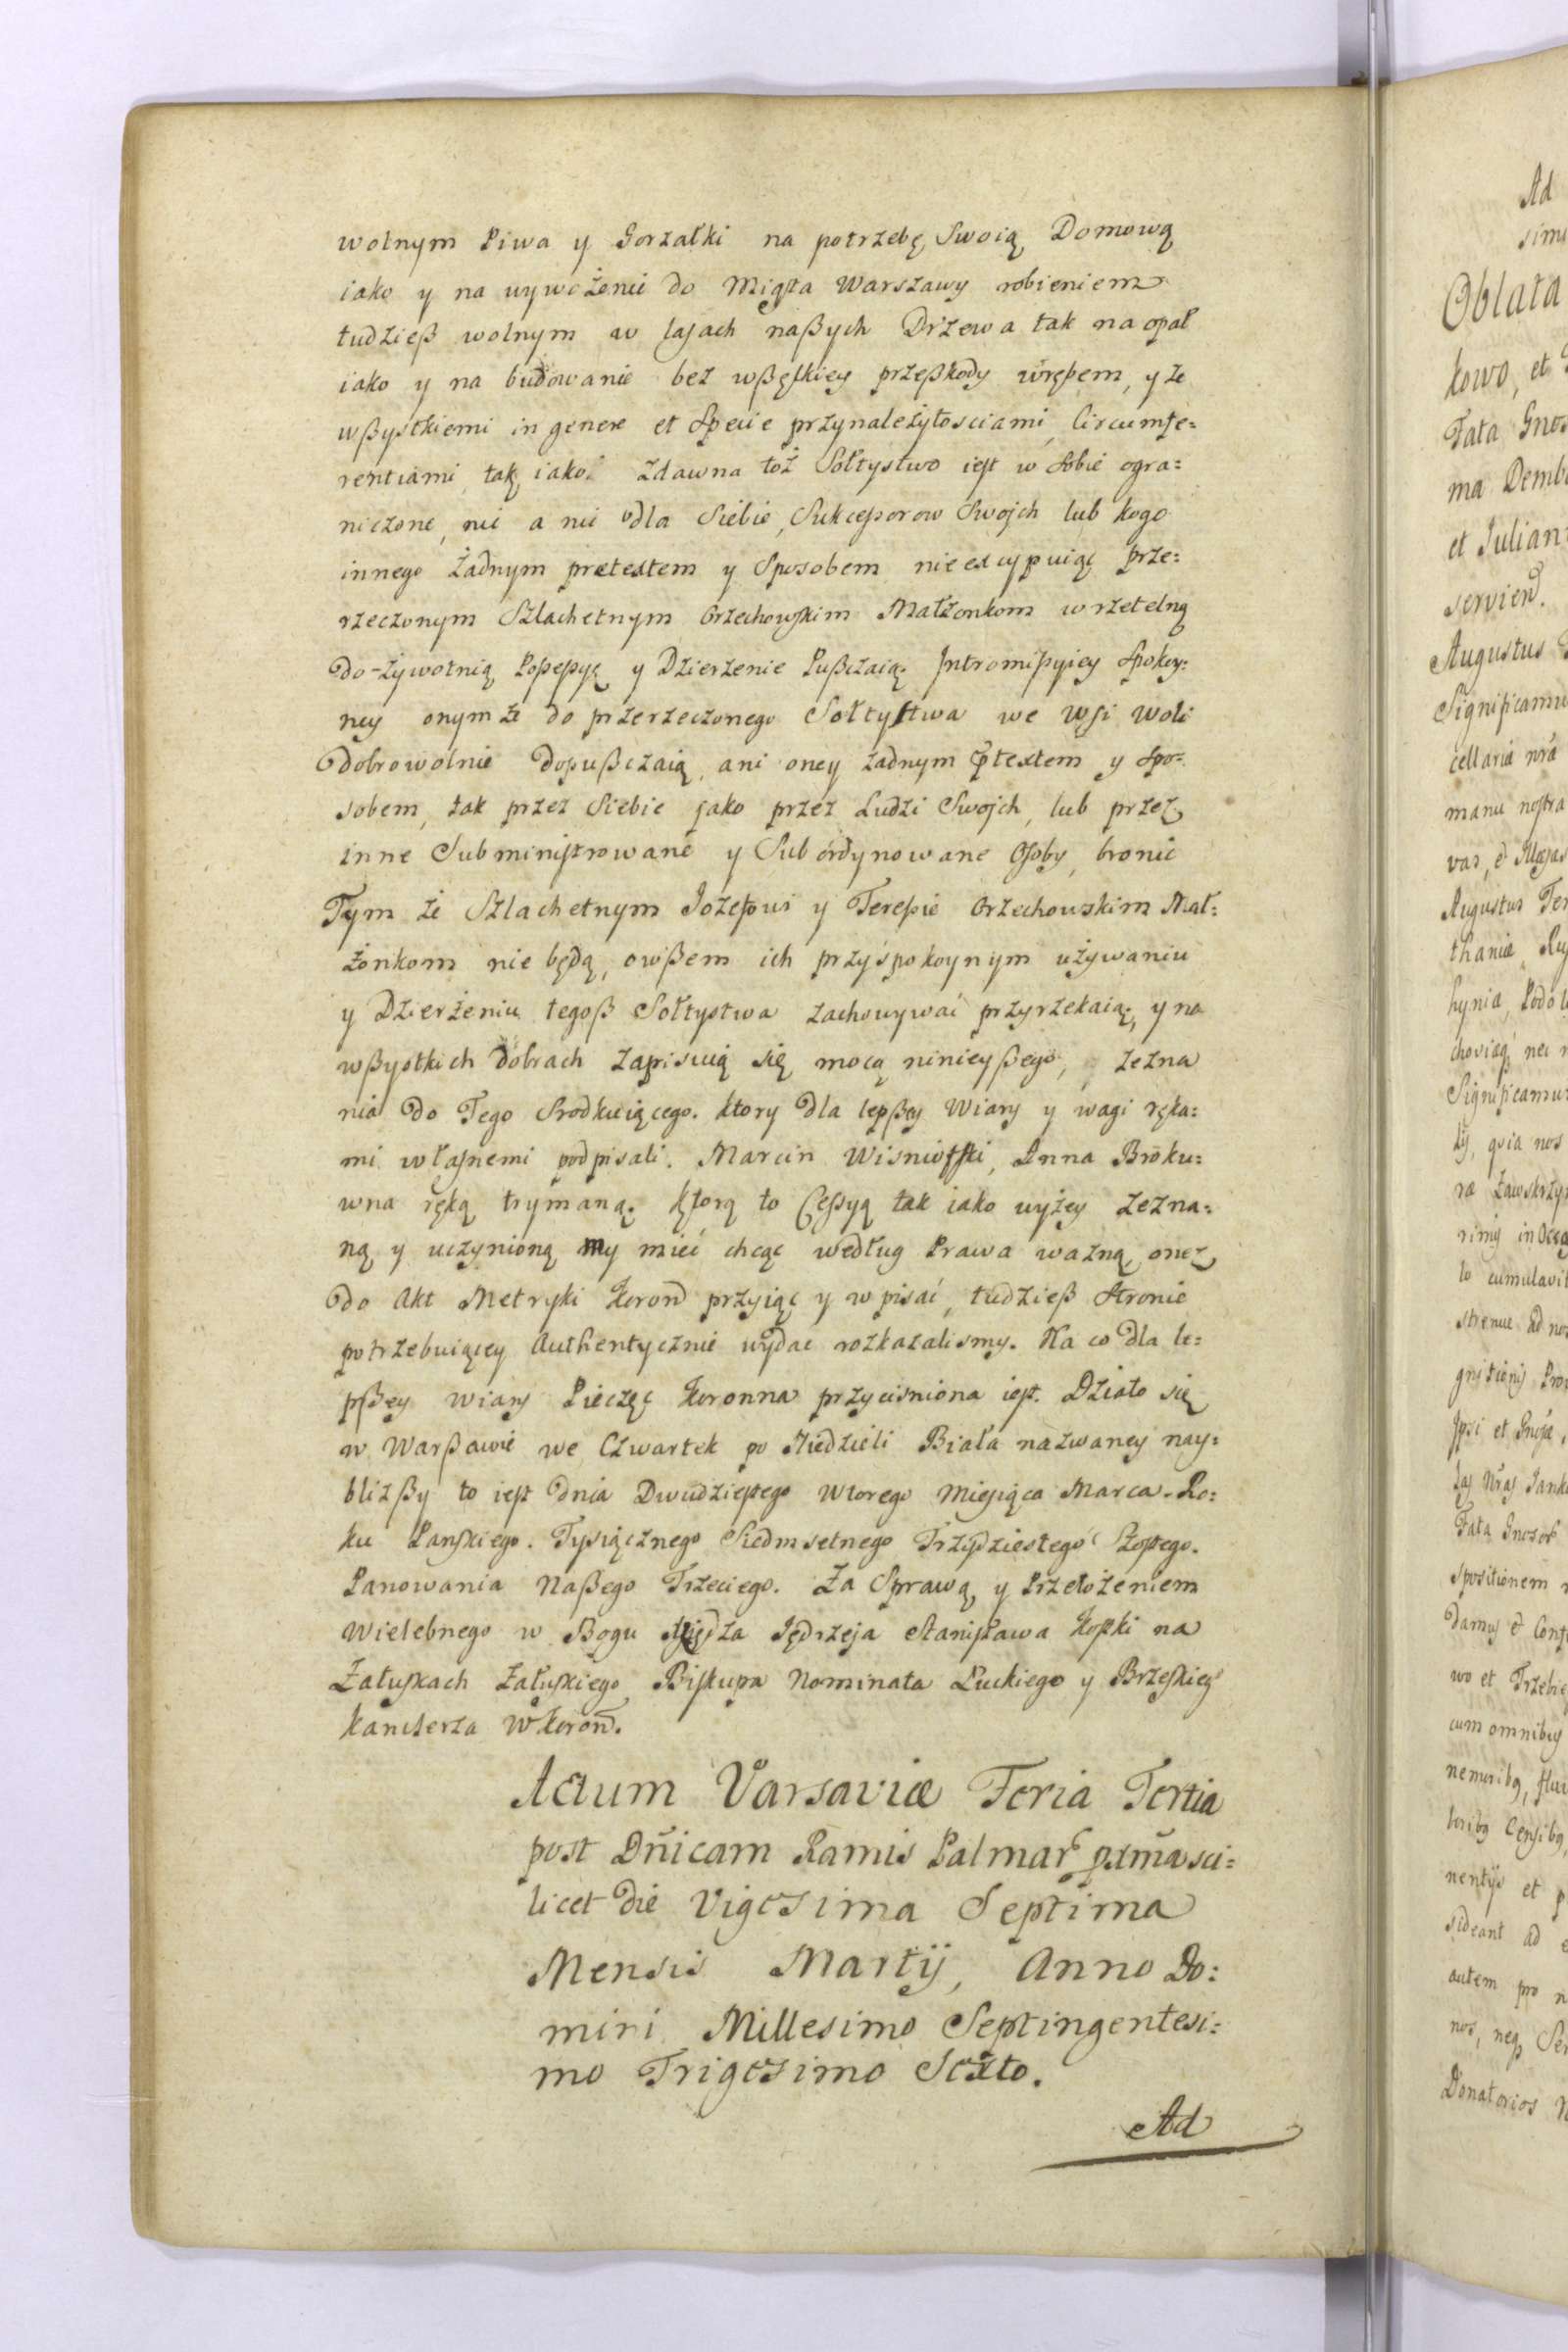 wolnym Piwa y Gorzałki na potrzebę Swoią Domową
iako y na wywożenie do Miasta Warszawy robieniem
tudzieß wolnym w lasach naßych Drzewa tak na opał
iako y na budowanie bez wßelkiey przeßkody wrębem, y ze
wßystkiemi in genere et Specie przynależytosciami, Circumfe=
rentiami, tak iako zdawna toż Sołtystwo iest w Sobie ogra=
niczone, nic a nic dla Siebie, Sukcessorow Swojch lub kogo
innego żadnym pretextem y Sposobem nie excypuiąc prze=
rzeczonym Szlachetnym Orzechowskim Małżonkom w rzetelną
do-żywotnią Possessyą y Dzierżenie Pußczaią. Intromissyiey Spokoy=
ney onymże do przerzeczonego Sołtystwa we wsi Woli
dobrowolnie dopußczaią, ani oney żadnym ptextem y Spo=
sobem, tak przez Siebie jako przez Ludzi Swojch, lub przez
inne Subministrowane y Subordynowane Osoby, bronic
Tym że Szlachetnym Jozefowi y Teressie Orzechowskim Mał=
żonkom nie będą, owßem ich przy spokoynym używaniu
y Dzierżeniu tegoß Sołtystwa zachowywać przyrzekaią, y na
wßystkich dobrach zapisuią się mocą ninieyßego, zezna
nia do Tego Srodkuiącego. ktory dla lepßey Wiary y wagi ręka=
mi własnemi podpisali. Marcin Wisniofski, Anna Broku=
wna ręką trymaną. ktorą to Cessyą tak iako wyżey zezna=
ną y uczynioną my mieć chcąc według Prawa ważną, onez
do Akt Metryki Koron przyiąc y wpisać, tudzieß Stronie
potrzebuiącey Authentycznie wydac rozkazalismy. Na co dla le=
pßey wiary Pieczęć Koronna przycisniona iest. Działo się
w Warßawie we Czwartek po Niedzieli Biała nazwaney nay=
bliżßy to iest dnia Dwudziestego wtorego Miesiąca Marca. Ro=
ku Pańskiego. Tysiącznego Siedmsetnego Trzydziestego Szostego.
Panowania Naßego Trzeciego. Za Sprawą y Przełożeniem
Wielebnego w Bogu Xiędza Jędrzeja Stanisława Kostki na
Załuskach Załuskiego Biskupa Nominata Łuckiego y Brzeskieg°
Kanclerza W Koron.
Actum Varsaviæ Feria Tertia
post Dñicam Ramis Palmar pxma sci=
licet die Vigesima Septima
Mensis Martÿ, Anno Do:
mini Millesimo Septingentesi:
mo Trigesimo Sexto.
Ad
Ad
Oblata
kowo, et
Fata
ma
et Julian
servien.
Augustus
Significamus
cellaria nra
manu nostra
Augustus
thaniæ
Significamus
quia nos
strenue ad
Ipsi et
Fata
damus et
wo et
cum omnibus
nentÿs et
sideant ad
autem pro
nos, neq
Donatorios